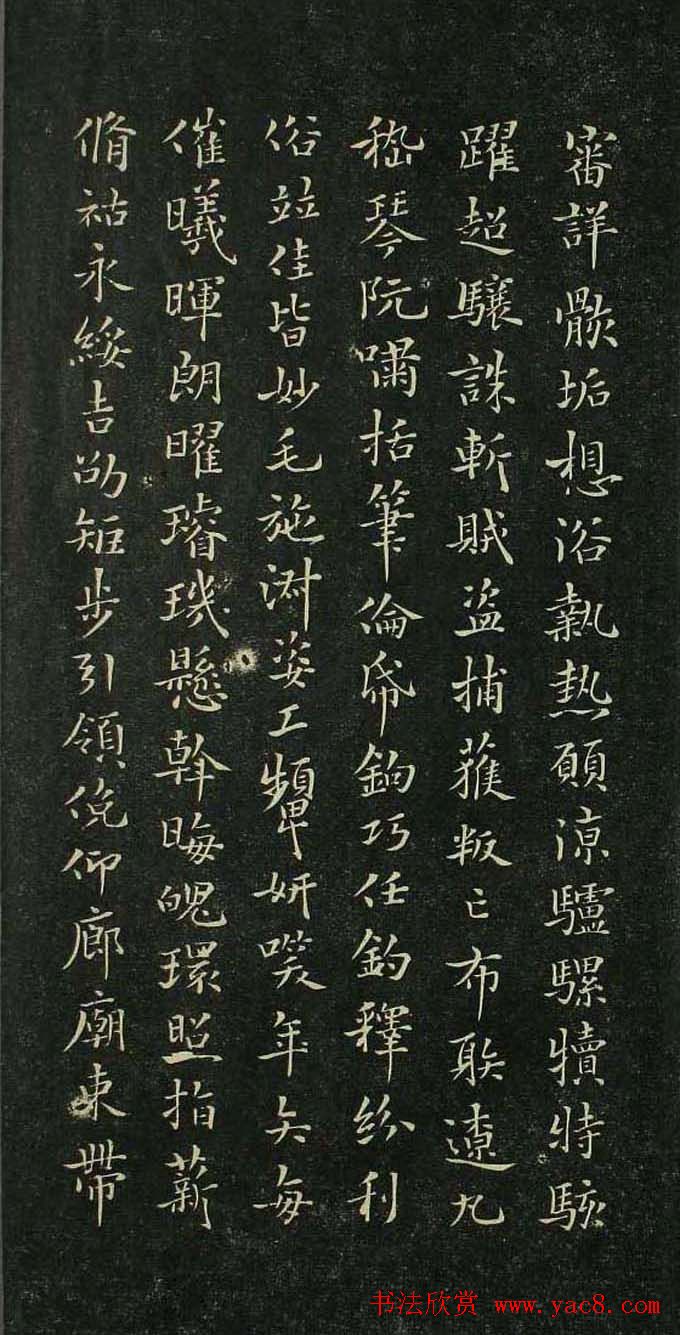 審詳骸垢想浴執熱願涼驢騾犢特駭
躍超驤誅斬賊盜捕獲叛亡布射遼丸
嵇琴阮嘯恬筆倫紙鈞巧任釣釋紛利
俗竝佳皆妙毛施淑姿工顰妍笑年矢每
催曦暉朗曜璿璣懸斡晦魄環照指薪
脩祜永綏吉劭矩步引領俛仰廊廟束帶
书法欣赏 www.yac8.com